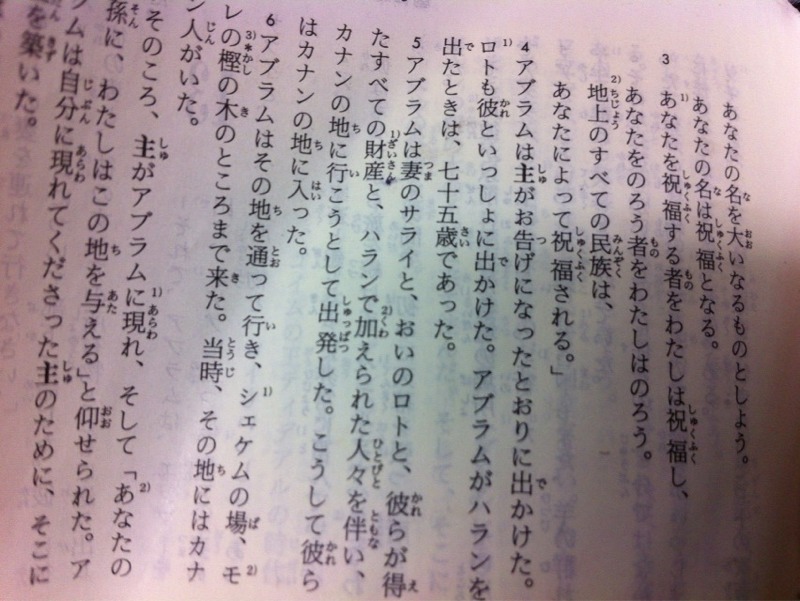 あなたの名を大いなるものとしよう。
あなたの名は祝福となる。
3 あなたを祝福する者をわたしは祝福し、
あなたをのろう者をわたしはのろう。
地上のすべての民族は、
あなたによって祝福される。」
4 アブラムは主がお告げになったとおりに出かけた。
ロトも彼といっしょに出かけた。アブラムがハランを
出たときは、七十五歳であった。
5 アブラムは妻のサライと、おいのロトと、彼らが得
たすべての財産と、ハランで加えられた人々を伴い、
カナンの地に行こうとして出発した。こうして彼ら
はカナンの地に入った。
6 アブラムはその地を通って行き、シェケムの場、モ
レの樫の木のところまで来た。当時、その地にはカナ
ン人がいた。
そのころ、主がアブラムに現れ、そして「あなたの
孫に、わたしはこの地を与える」と仰せられた。ア
ラムは自分に現れてくださった主のために、そこに
を築いた。